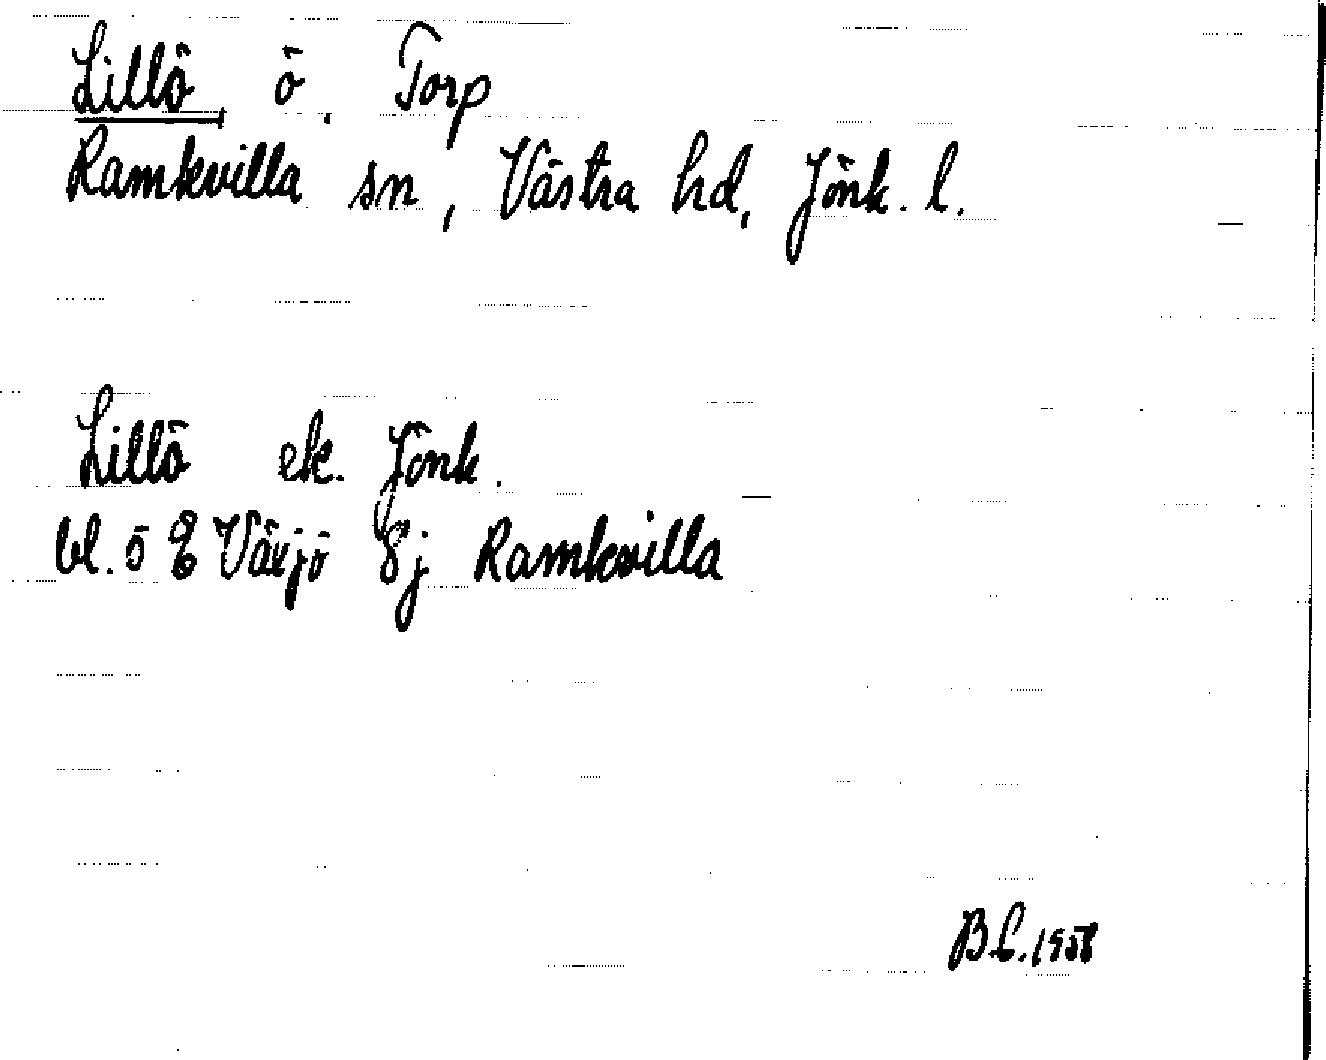 Lillö, ö, Torp
Ramkvilla sn, Västra hd, Jönk. l.
Lillö ek. Jönk.
bl. 5 E Växjö 8j Ramkvilla
B.L. 1958